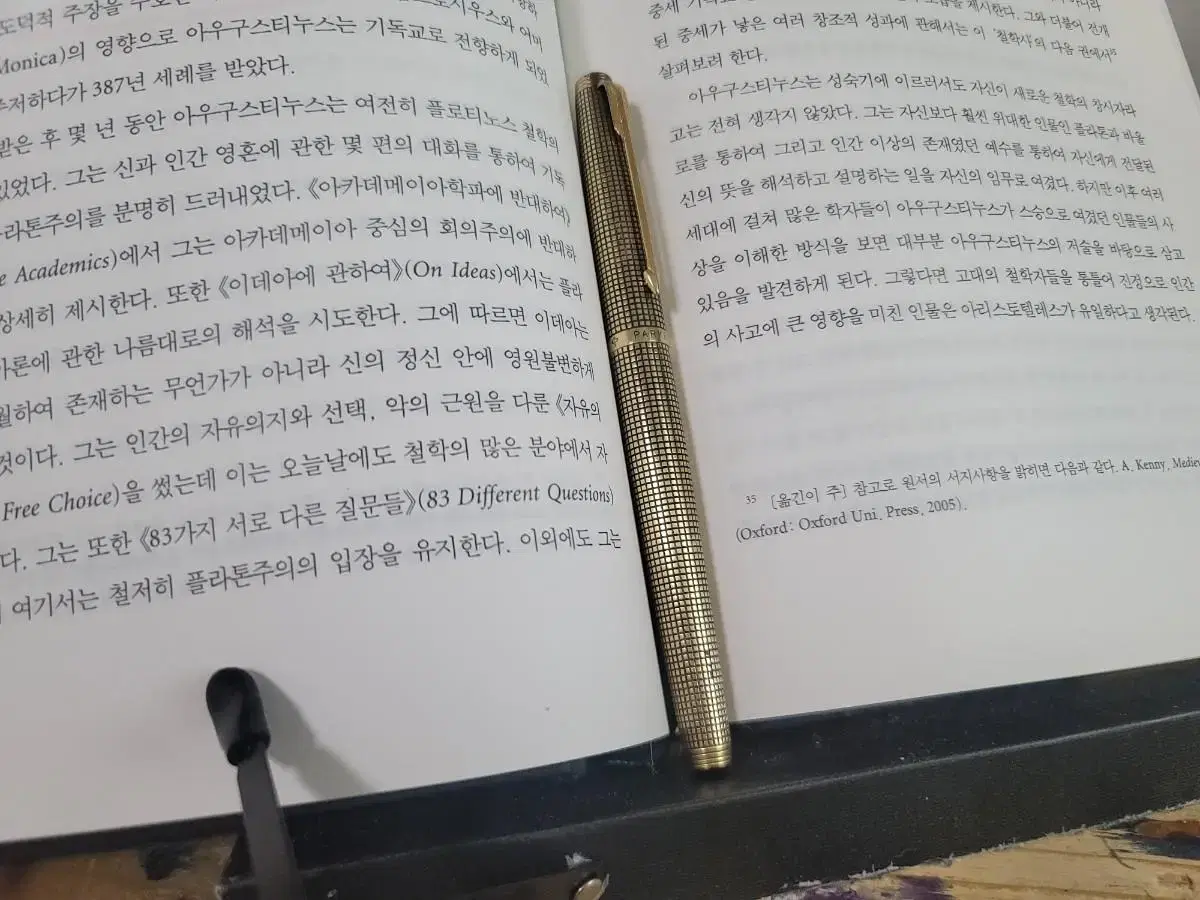 도덕적 주장을
Monica)의 영향으로 아우구스티누스는 기독교로 전향하게 되었
주저하다가 387년 세례를 받았다.
받은 후 몇 년 동안 아우구스티누스는 여전히 플로티노스 철학의
있었다. 그는 신과 인간 영혼에 관한 몇 편의 대화를 통하여 기독
라톤주의를 분명히 드러내었다. 《아카데메이아학파에 반대하여》
Academics)에서 그는 아카데메이아 중심의 회의주의에 반대하
상세히 제시한다. 또한 《이데아에 관하여》(On Ideas)에서는 플라
아론에 관한 나름대로의 해석을 시도한다. 그에 따르면 이데아는
월하여 존재하는 무언가가 아니라 신의 정신 안에 영원불변하게
것이다. 그는 인간의 자유의지와 선택, 악의 근원을 다룬 《자유의
Free Choice)을 썼는데 이는 오늘날에도 철학의 많은 분야에서 자
다. 그는 또한 《83가지 서로 다른 질문들》(83 Different Questions)
여기서는 철저히 플라톤주의의 입장을 유지한다. 이외에도 그는
제시한다. 그와 더불어 전개
된 중세가 낳은 여러 창조적 성과에 관해서는 이 '철학사'의 다음 권에서35
살펴보려 한다.
아우구스티누스는 성숙기에 이르러서도 자신이 새로운 철학의 창시자라
고는 전혀 생각지 않았다. 그는 자신보다 훨씬 위대한 인물인 플라톤과 바울
로를 통하여 그리고 인간 이상의 존재였던 예수를 통하여 자신에게 전달된
신의 뜻을 해석하고 설명하는 일을 자신의 임무로 여겼다. 하지만 이후 여러
세대에 걸쳐 많은 학자들이 아우구스티누스가 스승으로 여겼던 인물들의 사
상을 이해한 방식을 보면 대부분 아우구스티누스의 저술을 바탕으로 삼고
있음을 발견하게 된다. 그렇다면 고대의 철학자들을 통틀어 진정으로 인간
의 사고에 큰 영향을 미친 인물은 아리스토텔레스가 유일하다고 생각된다.
35 [옮긴이 주] 참고로 원서의 서지사항을 밝히면 다음과 같다. A. Kenny, Mediev
(Oxford: Oxford Uni. Press, 2005).